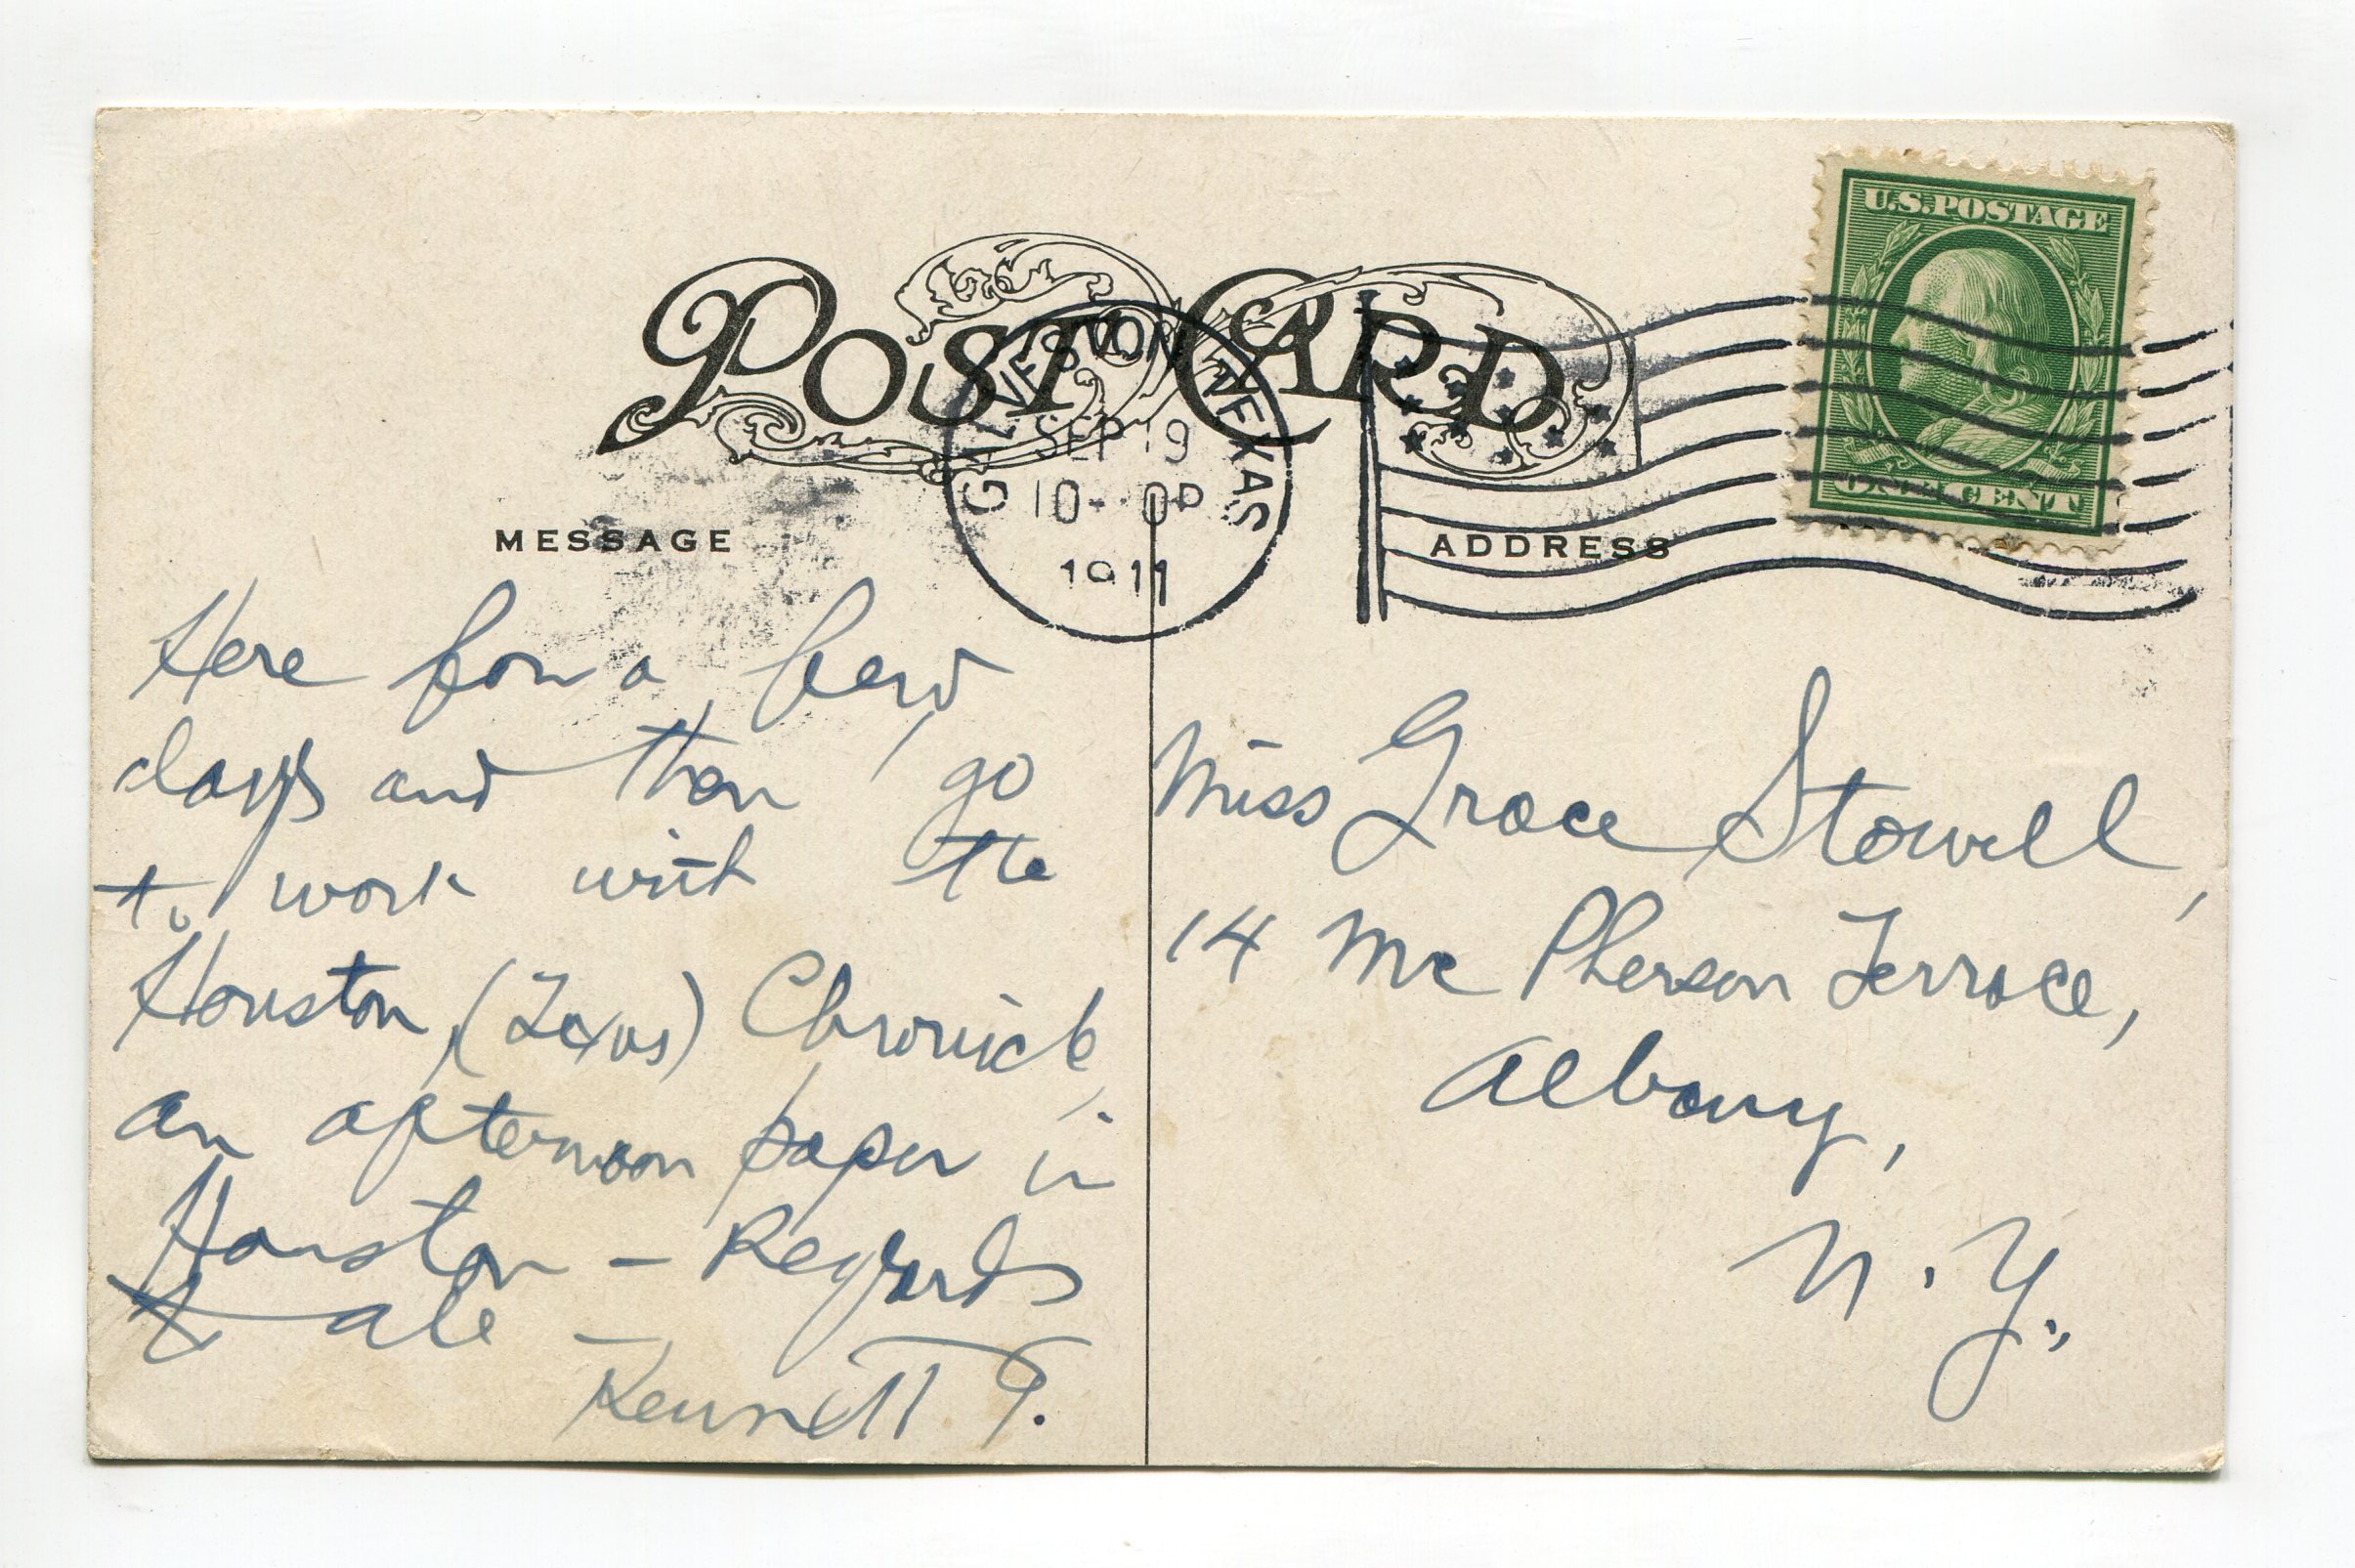 POST CARD
GALVESTON TEXAS
SEP 19
10- 0P
1911
U.S. POSTAGE
MESSAGE
ADDRESS
Here for a few
days and then go
to work with the
Houston (Texas) Chronicle,
an afternoon paper in
Houston - Regards
to all -
Kennett T.
Miss Grace Stowell,
14 Mc Pherson Terrace,
Albany,
N. Y.